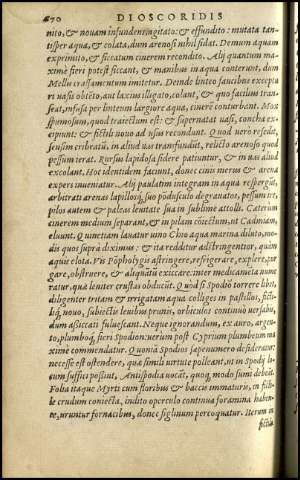 470 DIOSCORIDIS
mito, & nouam infundens agitato: & effundito: mutata tan-
tisper aqua, & colata, dum arenosi nihil sidat. Demum aquam
exprimito, & siccatum cinerem recondito. Alij quantum ma-
xime fieri potest siccant, & manibus in aqua conterunt, dum
Mellis crassamentum imitetur. Deinde linteo faucibus excepta
ri uasi obtento, aut laxius illigato, colant, & quo facilius trans
feat, infusa per linteum largiore aqua, cinerē conturbant. Mox
spumosum, quod traiectum est: & supernatat uasi, concha ex-
cipiunt: & fictili nouo ad usus recondunt. Quod uero resedit,
sensim cribratū, in aliud uas transfundit, relicto arenoso quod
pessum ierat. Rursus lapidosa sidere patiuntur, & in uas aliud
excolant. Hoc identidem faciunt, donec cinis merus & arena
expers inueniatur. Alij paulatim integram in aqua respergūt,
arbitrati arenas lapillosq́; suo pōdusculo degrauatos, pessum ire,
pilos autem & paleas leuitate sua in sublime attolli. Cæterùm
cinerem medium separant, & in pilam cōiectum, ut Cadmiam,
eluunt. Quinetiam lauatur uino Chio aqua marina diluto, mo-
dis quos suprà diximus: & ita redditur adstringentior, quàm
aquis elota. Vis Pōpholygis astringere, refrigerare, explere, pur
gare, obstruere, & aliquātū exiccare: inter medicamēta nume
ratur, quæ leniter crustas obducūt. Quod si Spodiō torrere libet,
diligenter tritam & irrigatam aqua colliges in pastillos, fictili
q́; nouo, subiectis leuibus prunis, orbiculos continuò uersabis,
dum asiccati fuluescant. Neque ignorandum, ex auro, argen-
to, plumboq́; fieri Spodion: uerùm post Cyprium plumbeum ma
xime commendatur. Quoniā Spodos sæpenumero desideratur
necesse est ostendere, quæ simili uirtute polleant, ut in Spodij lo
cum suffici possint, Antispodia uocāt, quoq́; modo sumi debeāt.
Folia itaque Myrti cum floribus & baccis immaturis, in ficti-
le crudum coniecta, indito operculo continua foramina haben-
te, uruntur fornacibus, donec figlinum percoquatur. Iterum in
fictile